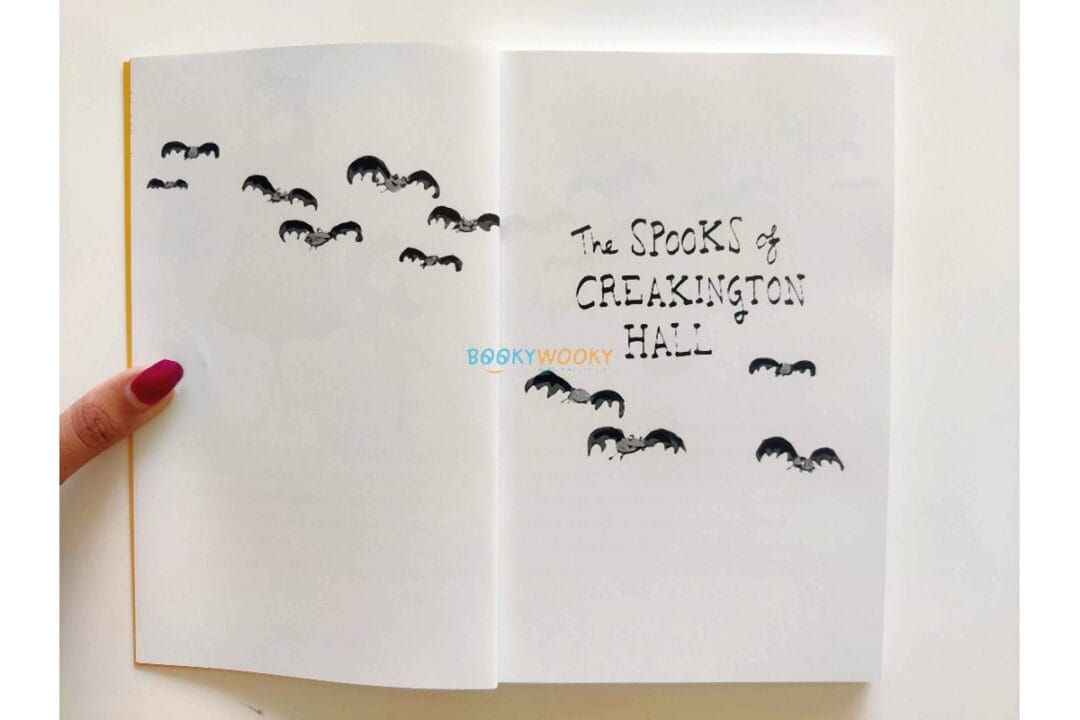 The SPOOKS of
CREAKINGTON
HALL
BOOKYWOOKY